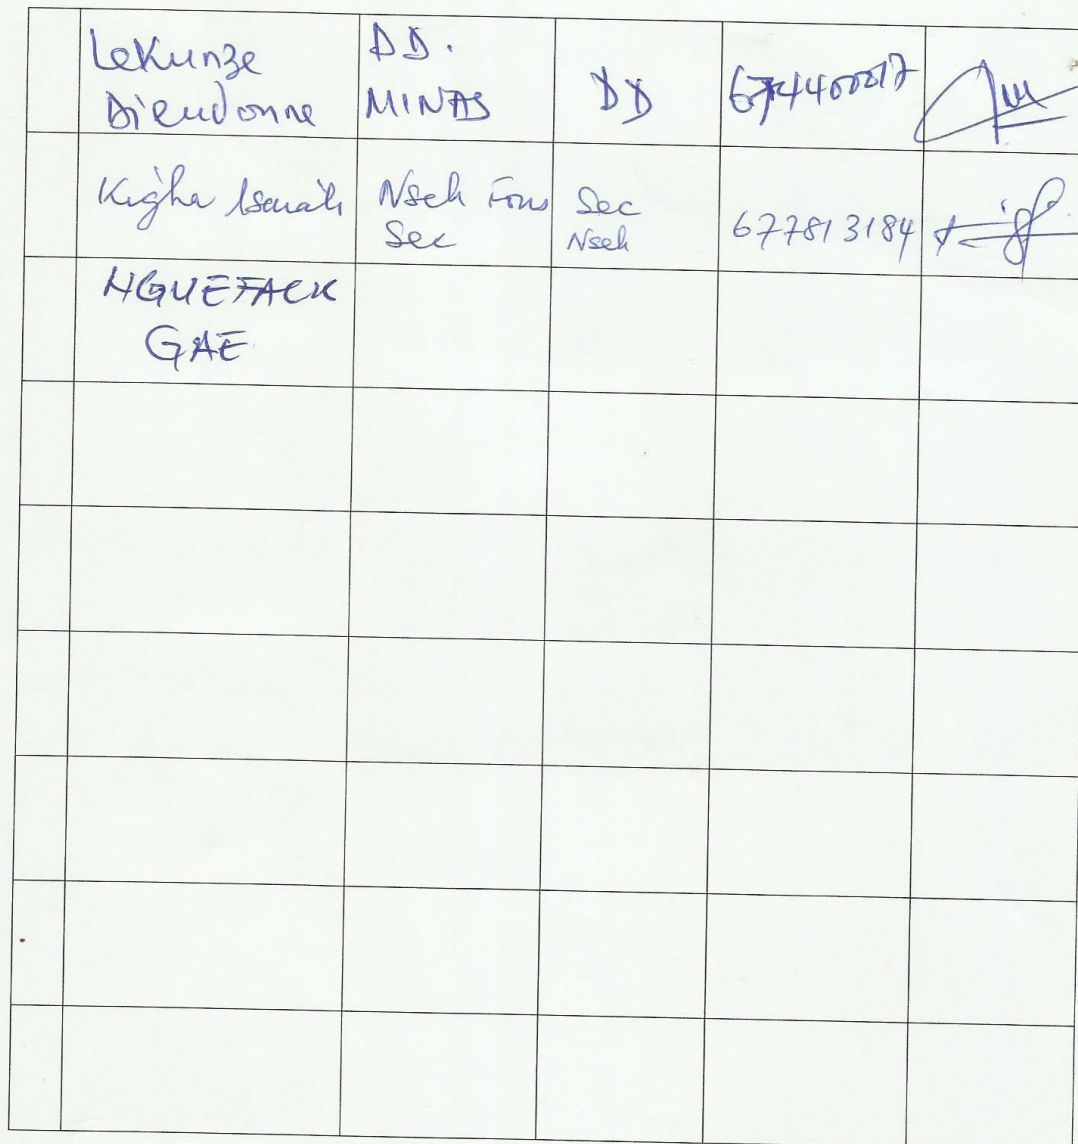 Lekunze
Dieudonne
DD.
MINAS
DD
674400017
Kigha Ismaila
Nseh Fons
Sec
Sec
Nseh
677813184
NGUEFACK
GAE